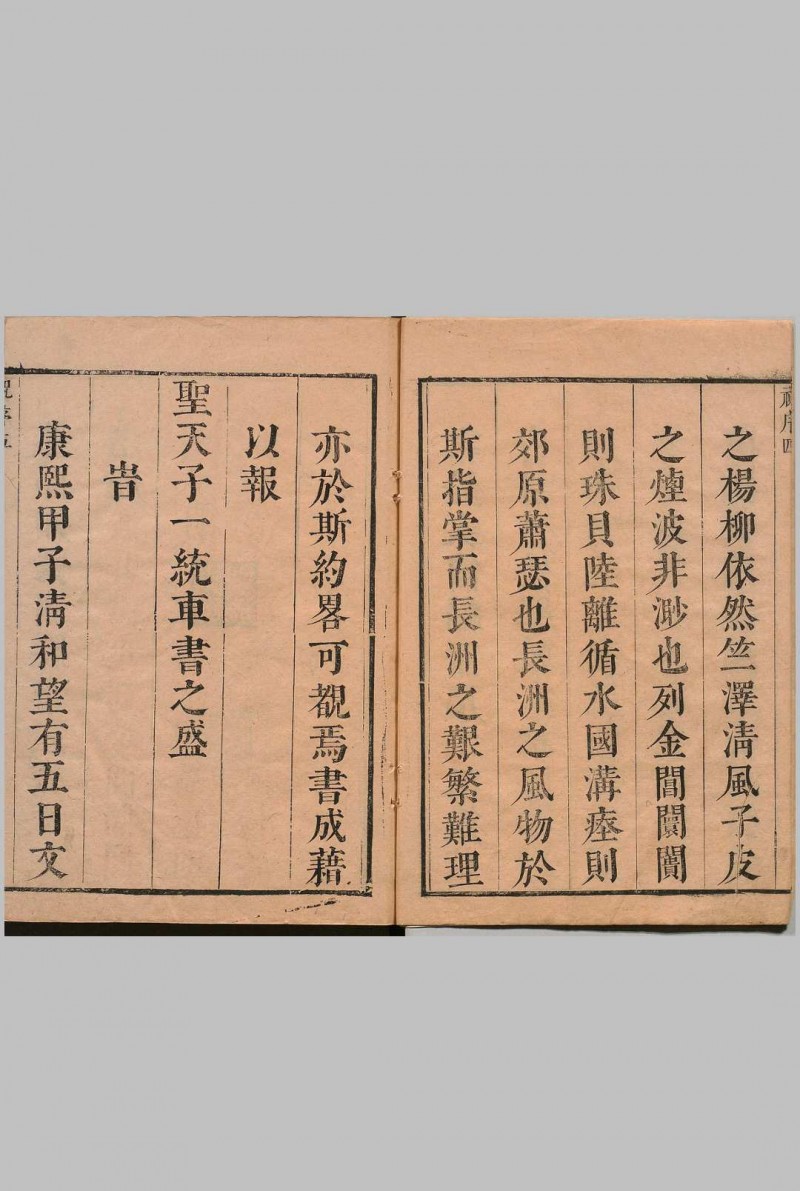 之楊柳依然竺澤淸風子皮
之煙波非渺也列金閶闤闠
則珠貝陸離循水國溝塍則
郊原蕭瑟也長洲之風物於
斯指掌而長洲之艱繁難理
亦於斯約畧可覩焉書成藉
以報
聖天子一統車書之盛
旹
康熙甲子淸和望有五日文
序四
序五